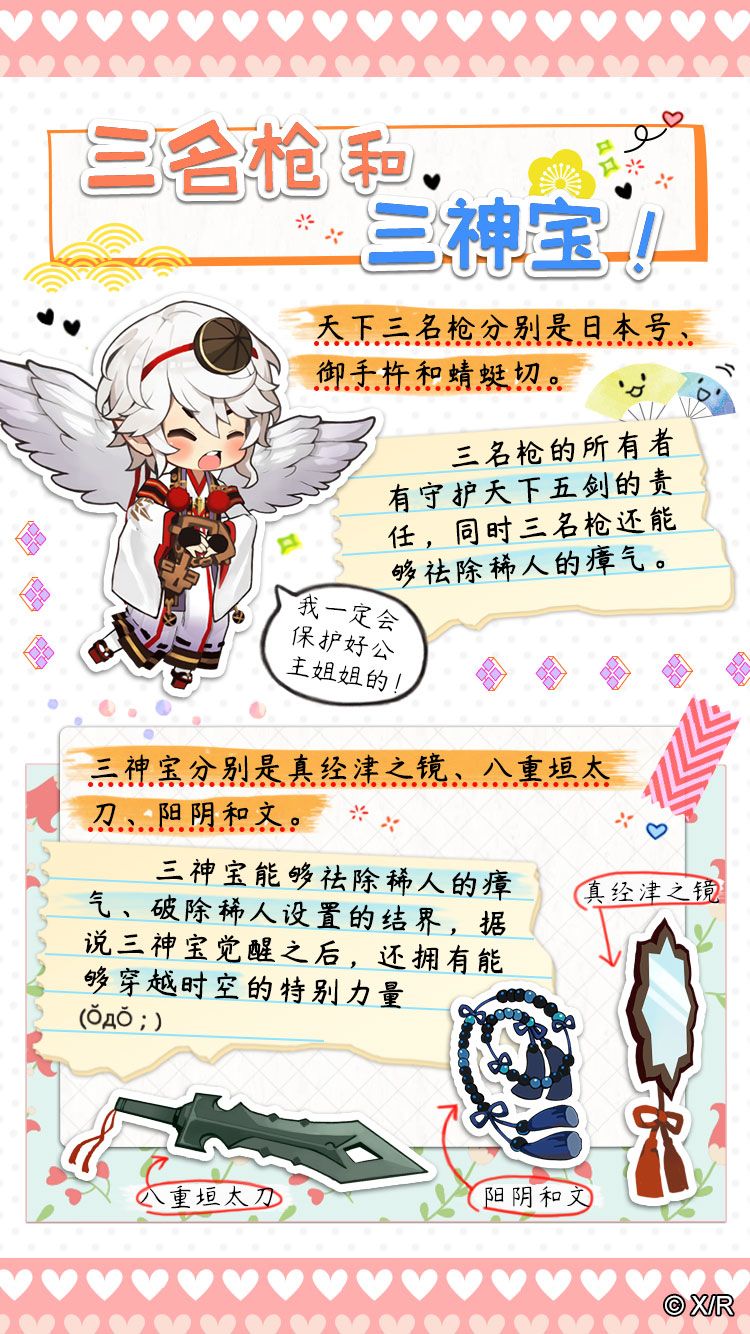 三名枪和
三神宝！
天下三名枪分别是日本号、
御手杵和蜻蜓切。
三名枪的所有者
有守护天下五剑的责
任，同时三名枪还能
够祛除稀人的瘴气。
我一定会
保护好公
主姐姐的！
三神宝分别是真经津之镜、八重垣太
刀、阳阴和文。
三神宝能够祛除稀人的瘴
气、破除稀人设置的结界，据
说三神宝觉醒之后，还拥有能
够穿越时空的特别力量
(ŎдŎ；)
真经津之镜
八重垣太刀
阳阴和文
© X/R